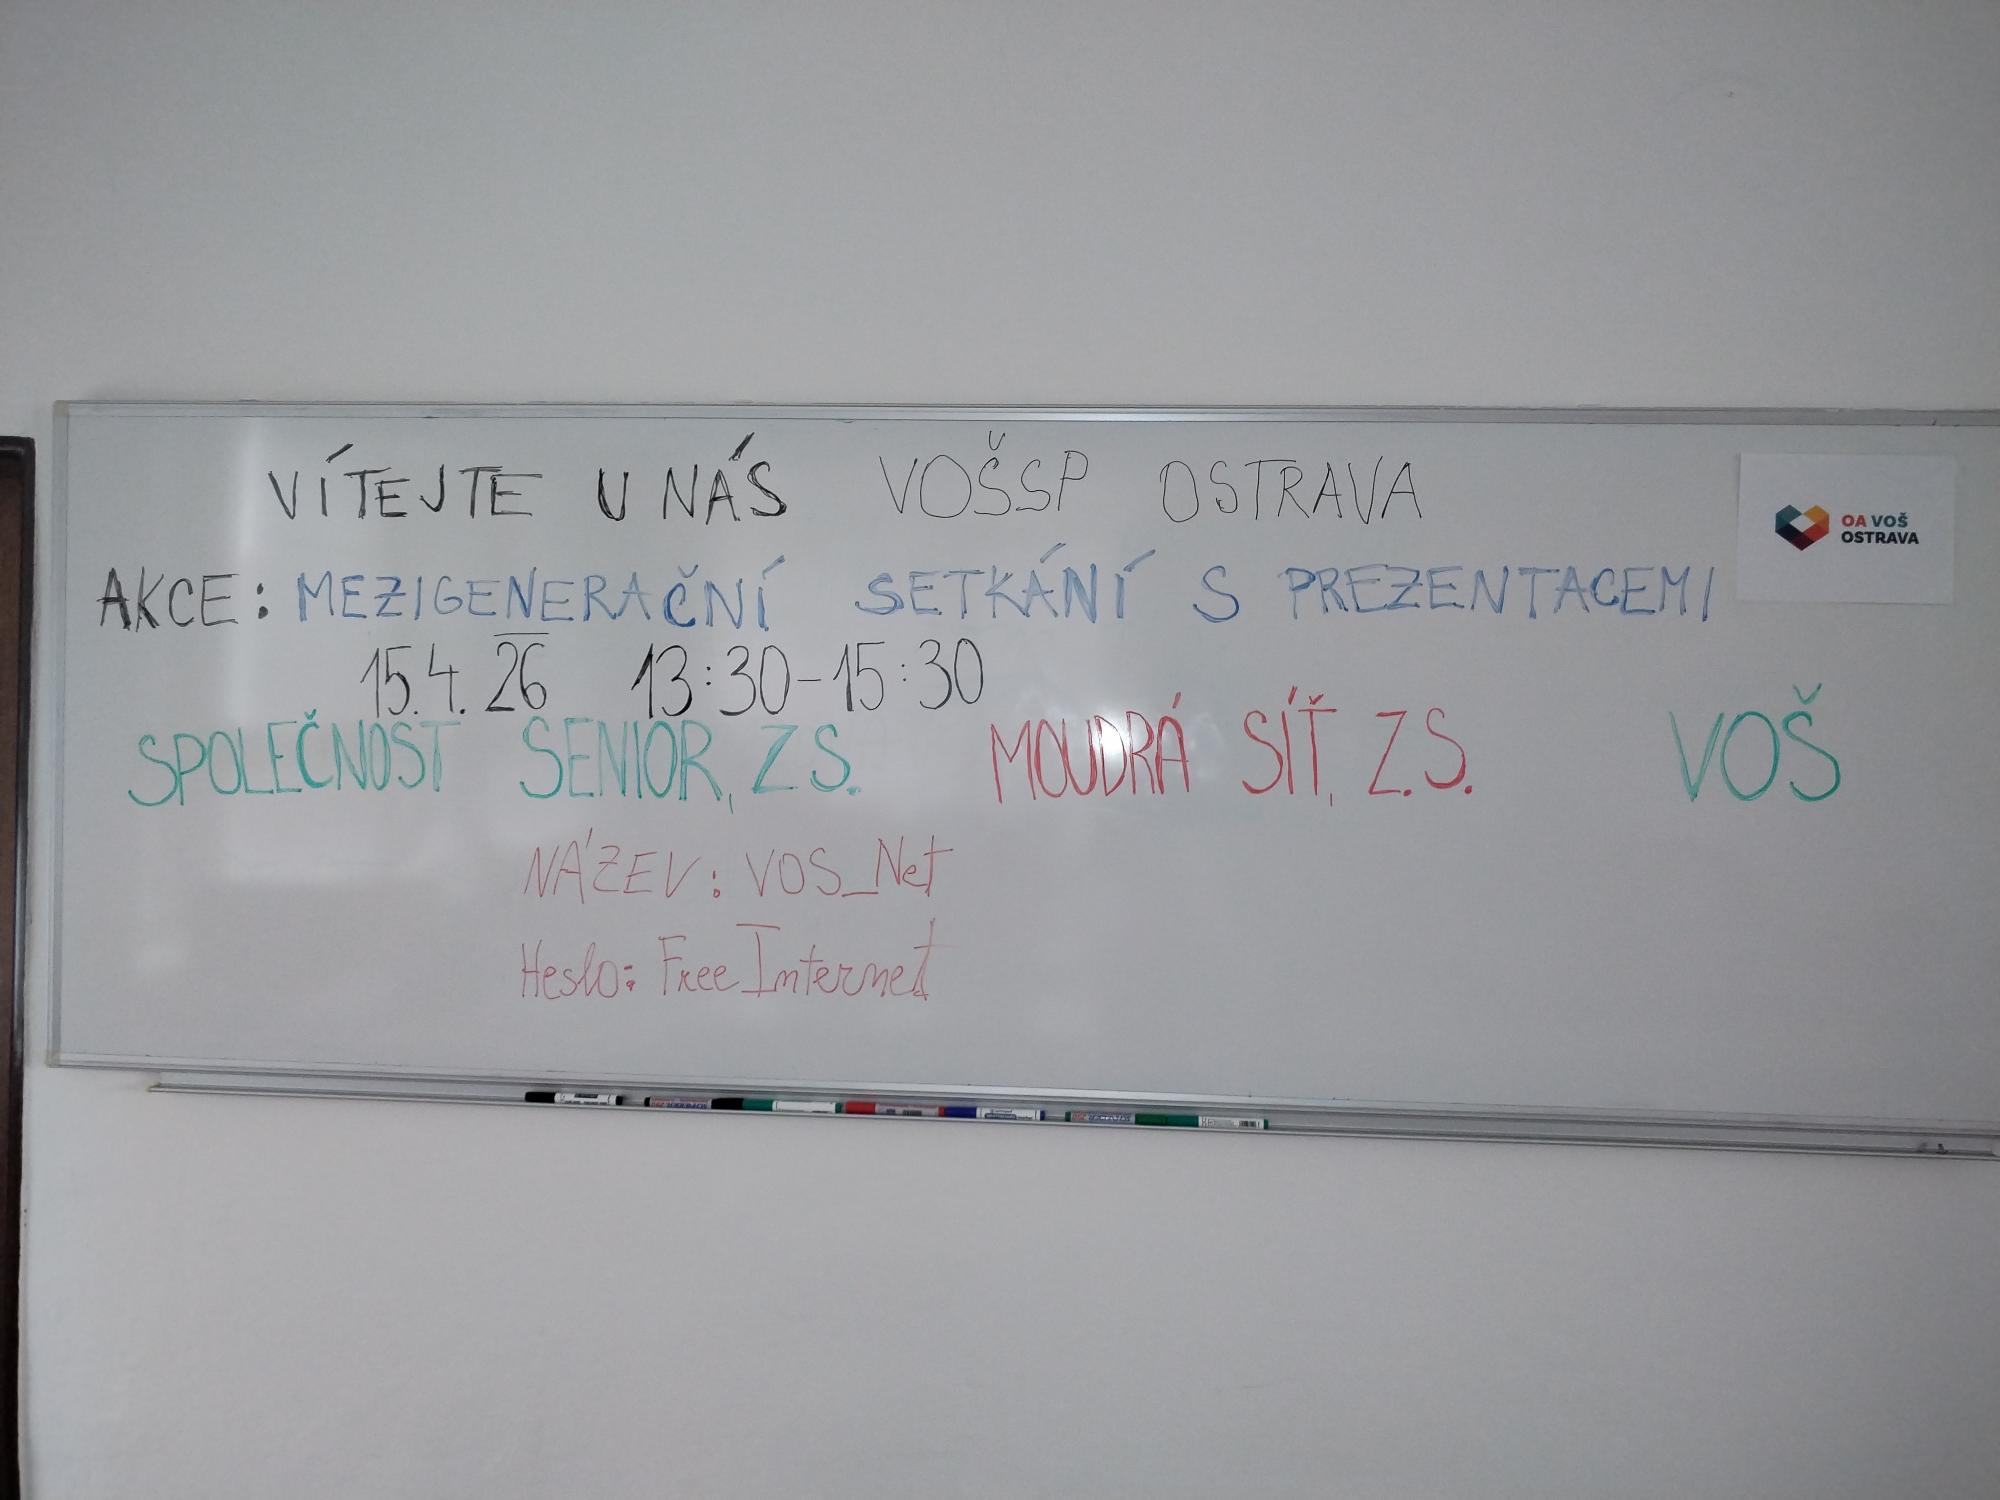 VÍTEJTE U NÁS VOŠSP OSTRAVA
OA VOŠ
OSTRAVA
AKCE: MEZIGENERAČNÍ SETKÁNÍ S PREZENTACEMI
15.4. 26 13:30-15:30
SPOLEČNOST SENIOR, Z S. MOUDRÁ SÍŤ, Z.S. VOŠ
NÁZEV: VOS_Net
Heslo: FreeInternet